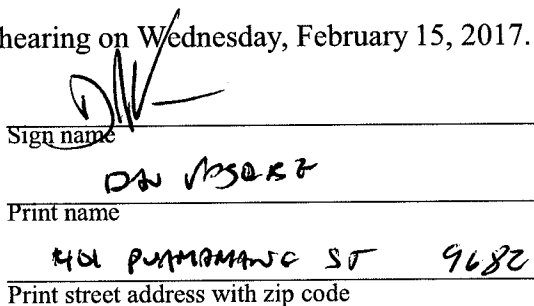 hearing on Wednesday, February 15, 2017.
Sign name
DAN
Print name
ST 9682
Print street address with zip code